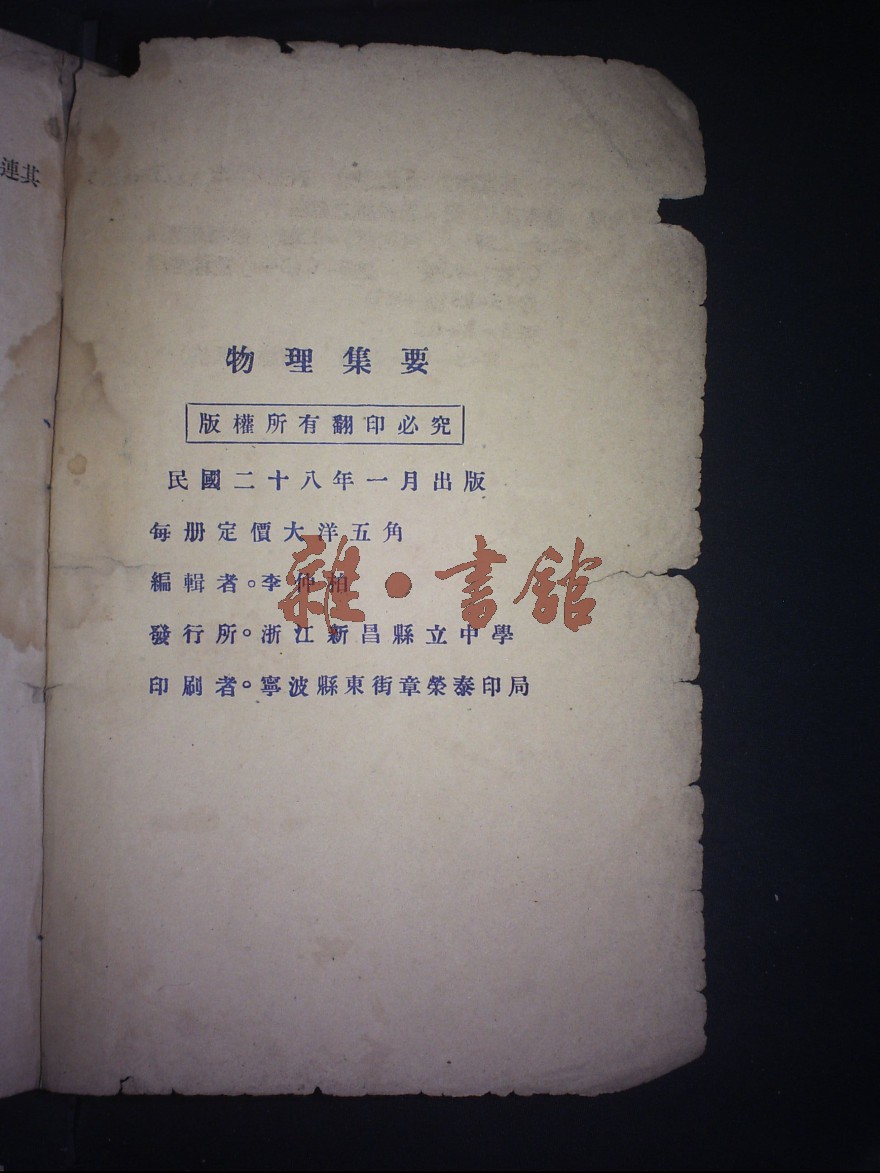 連其
物理集要
版權所有翻印必究
民國二十八年一月出版
每册定價大洋五角
編輯者。李仲柏
發行所。浙江新昌縣立中學
印刷者。寧波縣東街章榮泰印局
雜·書館